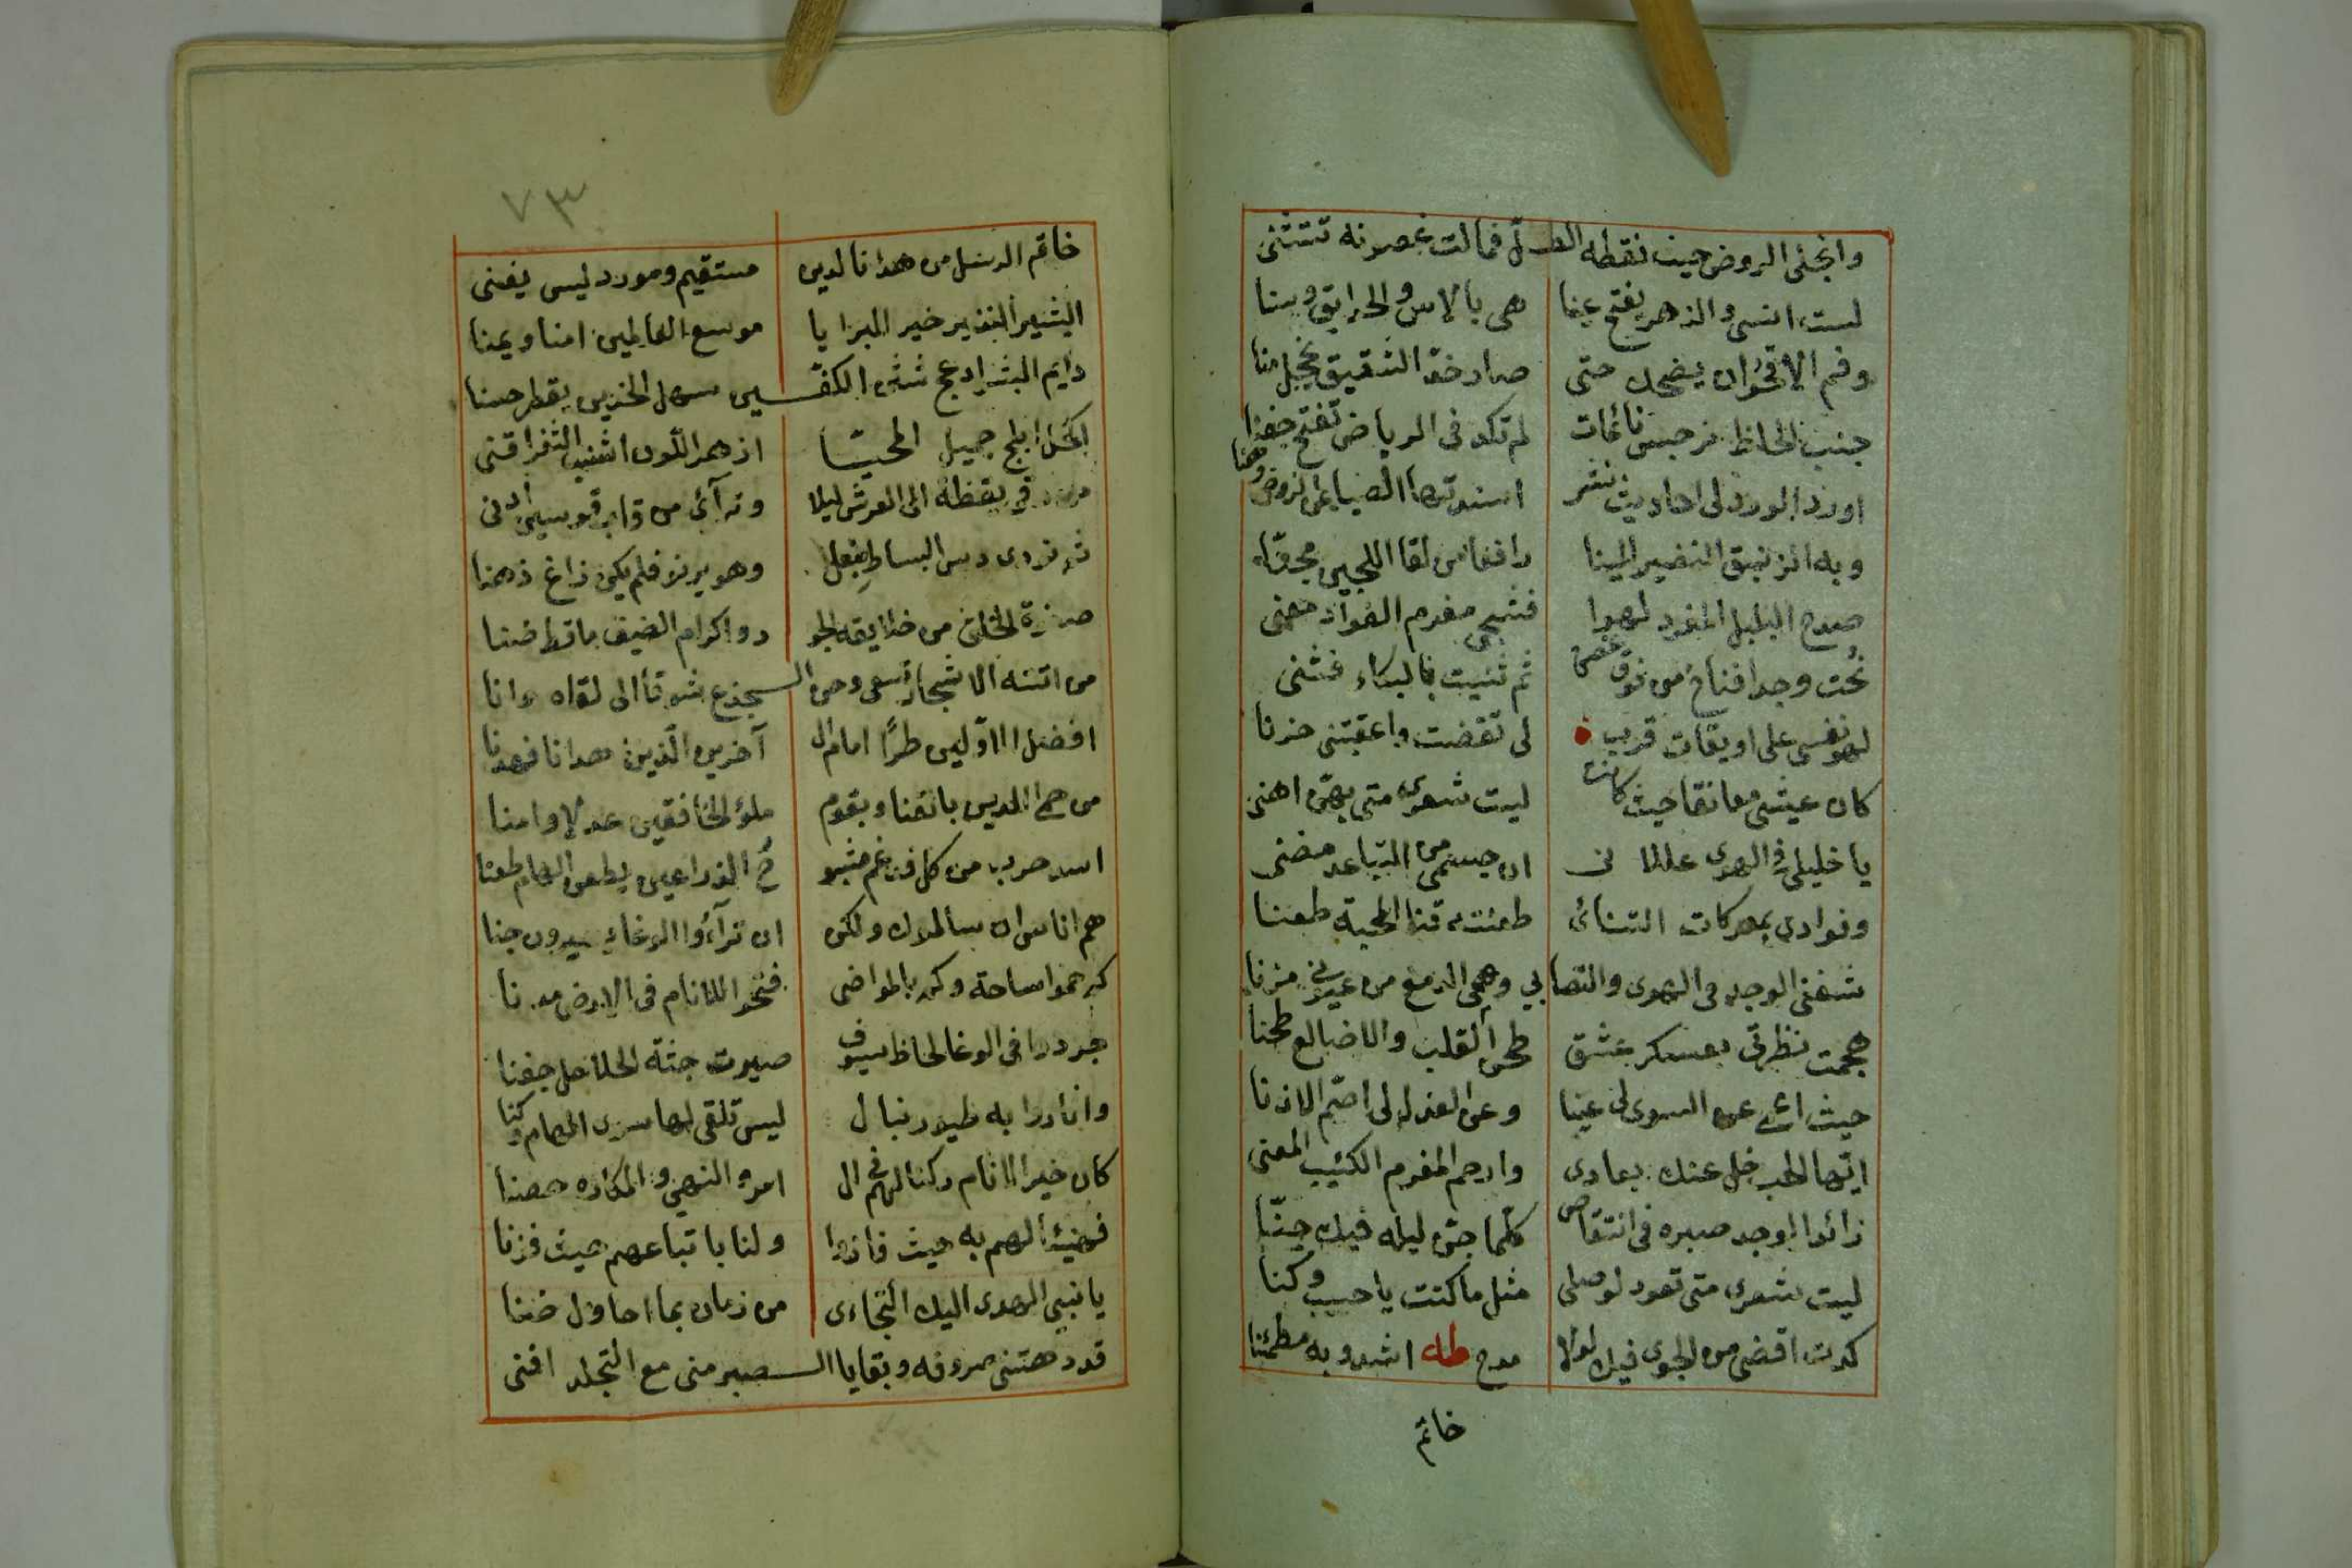 وانجلى الروض حيث نقطه الطـل فمالت غصونه تتثنى
لست انسى والزهر يفتح عينا هى بالاس والحدايق وسنا
وفم الاقحوان يضحك حتى صار خد الشقيق يخجل منا
جنب الحاظ نرجس نائمات لم تكد فى الرياض تفتح جفنا
اورد الورد لى احاديث نشر اسندتها الصبا عن الروض وهنا
وبه الزنبق النضير الينا رافعا من لقا اللجين مجنا
صدح البلبل المغرد لهوا فشجى مغرم الفواد معنى
نحت وجدا فناح من فوق غصن ثم ثنيت بالبكاء فثنى
لهف نفسى على اويقات قرب لى تقضت واعقبتنى حزنا
كان عيشى معانقا حيث كانت ليت شعرى متى بهن اهنى
يا خليلى فى الهوى عللانى ان جسمى من التباعد مضنى
وفوادى بمعركات التنائى طعنته قنا المحبة طعنا
شفنى الوجد فى الهوى والتصابي وهمى الدمع من عيونى مزنا
هجمت نظرتى بعسكر عشق طحن القلب والاضالع طحنا
حيث اعمى عن السوى لى عينا وعن العذل لى اصم الاذنا
ايها الحب خل عنك بعادى وارحم المغرم الكئيب المعنى
زائد الوجد صبره فى انتقاص كلما جن ليله فيك جنا
ليت شعرى متى تعود لوصلى مثل ما كنت يا حبيب وكنا
كدت اقضى من الجوى فيك لولا مدح طه اشدو به مطمئنا
خاتم
٧٣
خاتم الرسل من هدانا لدين مستقيم ومورد ليس يفنى
البشير النذير خير البرايا موسع العالمين امنا ويمنا
دايم البشر ادعج شثن الكفـين سهل الخدين يقطر حسنا
اكحل ابلج جميل المحيا ازهر اللون اشنب الثغر اقنى
فى يقظة الى العرش ليلا وترآئ من قاب قوسين ادنى
ثم نودى دس البساط بنعل وهو يرنو فلم يكن زاغ ذهنا
من خلايقه الجو دو اكرام الضيف ما قط ضنا
من اتته الاشجار تسعى وحن الـجذع شوقا الى لقاه وانا
افضل الاولين طرا امام ال آخرين الذين هدانا فهدنا
من حمى الدين بالقنا وبقوم ملؤ الخافقين عدلا وامنا
اسد حرب من كل قرم مشبو ح الذراعين يطعن الهام طعنا
هم اناس ان سالموك ولكن ان ترآءوا الوغاء يبدون جنا
كم حموا ساحة وكم بالمواضى فتحوا للانام فى الارض مدنا
جردوا فى الوغا لحاظ سيوف صيرت جثة الحلاحل جفنا
واثاروا به طيور نبال ليس تلقى لها سوى الهام وكنا
كان خير الانام ركنا لهم فى ال امر والنهى والمكاره حصنا
فهنيئا لهم به حيث فازوا ولنا باتباعهم حيث فزنا
يا نبى الهدى اليك التجاءى من زمان بما احاول ضنا
قد دهتنى صروفه وبقايا الـصبر منى مع التجلد افنى